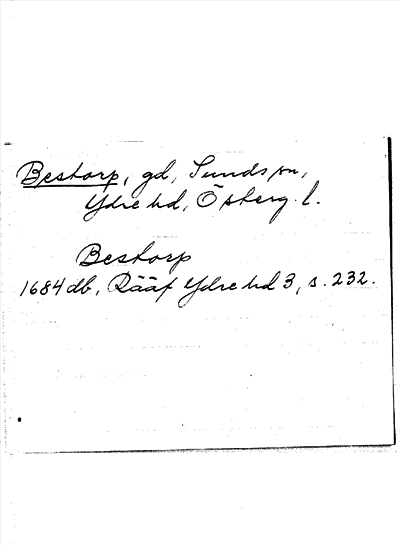 Bestorp, gd, Sunds sn,
Ydre hd, Östberg. l.
Bestorp
1684 db, Rääf Ydre hd 3, s. 232.